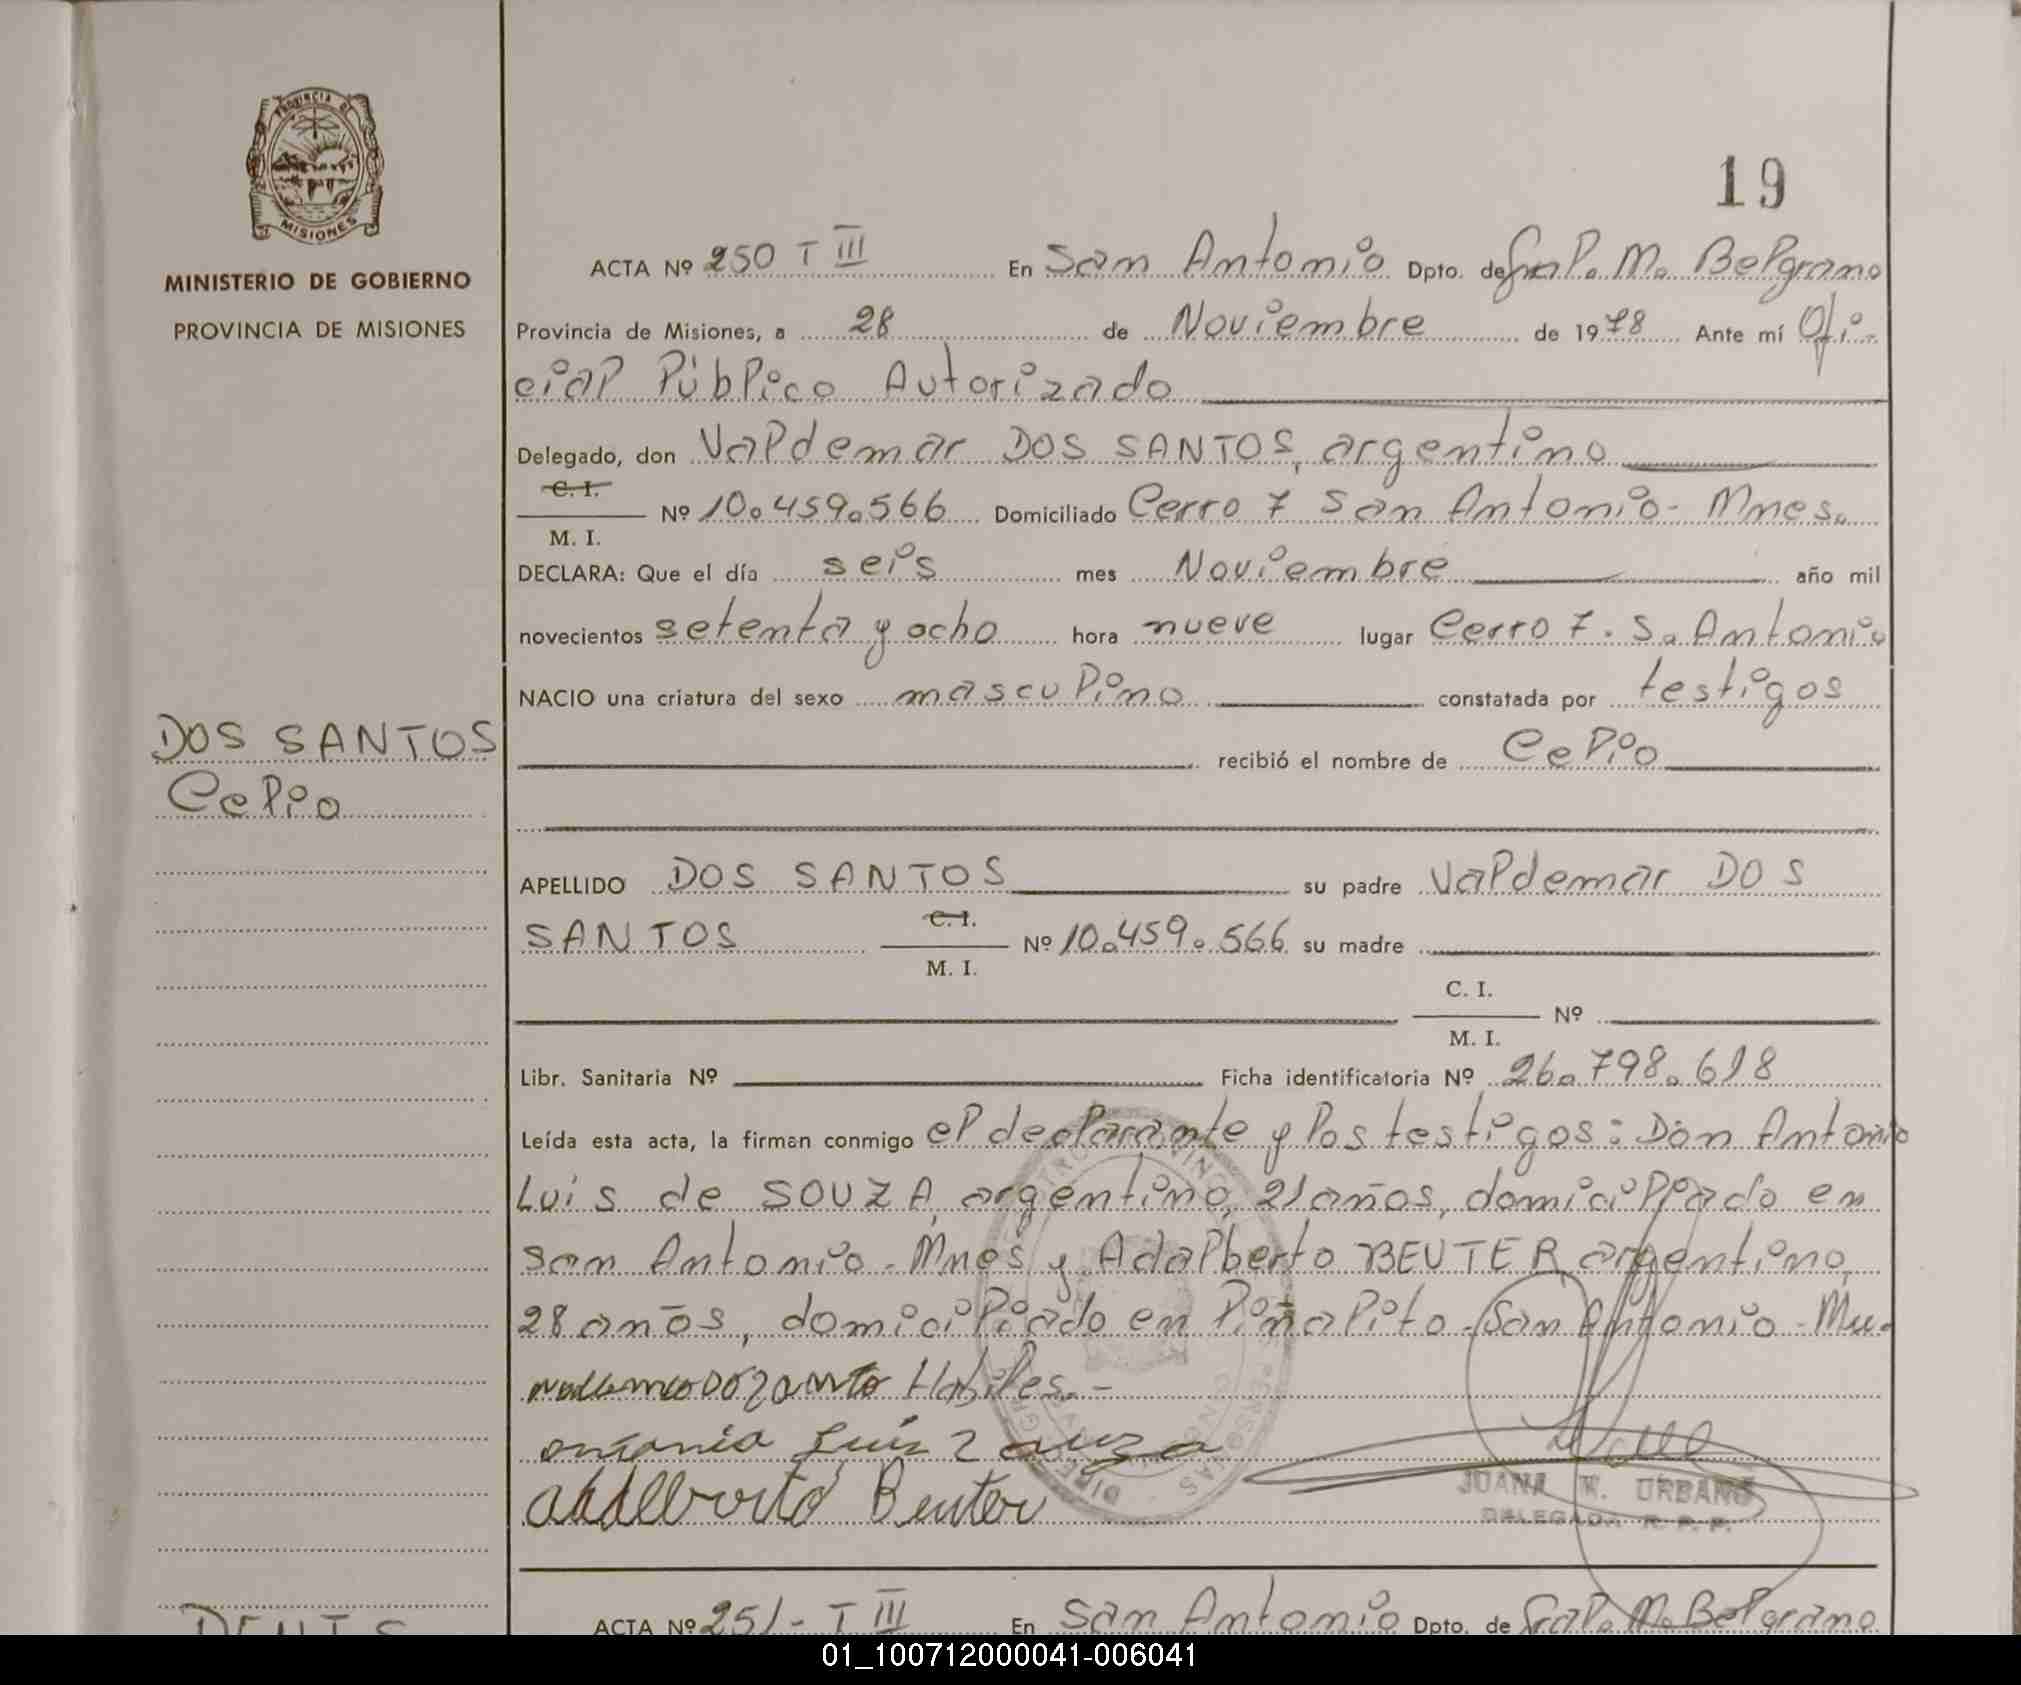 PROVINCIA DE
MISIONES
MINISTERIO DE GOBIERNO
PROVINCIA DE MISIONES
19
ACTA Nº 250 T III En San Antonio Dpto. de Gral. M. Belgrano
Provincia de Misiones, a 28 de Noviembre de 1978 Ante mí Ofi-
cial Público Autorizado
Delegado, don Valdemar DOS SANTOS, argentino
C. I.
M. I. Nº 10.459.566 Domiciliado Cerro 7 San Antonio- Mnes.
DECLARA: Que el día seis mes Noviembre año mil
novecientos setenta y ocho hora nueve lugar Cerro 7. S. Antonio
NACIO una criatura del sexo masculino constatada por testigos
DOS SANTOS
Celio
recibió el nombre de Celio
APELLIDO DOS SANTOS su padre Valdemar DOS
SANTOS C. I. M. I. Nº 10.459.566 su madre
C. I.
M. I. Nº
Libr. Sanitaria Nº Ficha identificatoria Nº 26.798.618
Leída esta acta, la firman conmigo el declarante y los testigos: Don Antonio
Luis de SOUZA, argentino, 21 años, domiciliado en
San Antonio - Mnes y Adalberto BEUTER argentino,
28 años, domiciliado en Piñalito - San Antonio -
Habiles.-
Luis
Beuter
JUANA URBANO
DELEGADA R. P. P.
ACTA Nº 251- T III En San Antonio Dpto. de Gral. M. Belgrano
01_100712000041-006041